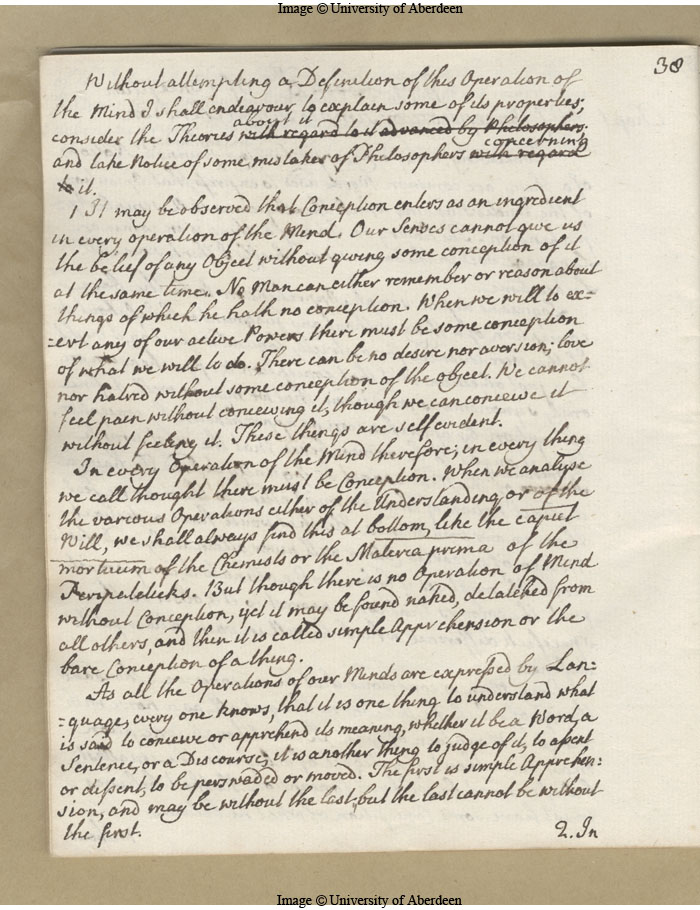 Image © University of Aberdeen
38
Without attempting a Definition of this Operation of
the Mind I shall endeavour to explain some of its properties;
about it
consider the Theories with regard to it advanced by Philosophers;
concerning
and take Notice of some mistakes of Philosophers with regard
to it.
1 It may be observed that Conception enters as an ingredient
in every operation of the Mind. Our Senses cannot give us
the belief of any Object without giving some conception of it
at the same time. No Man can either remember or reason about
things of which he hath no conception. When we will to ex=
=ert any of our active Powers there must be some conception
of what we will to do. There can be no desire nor aversion; love
nor hatred without some conception of the object. We cannot
feel pain without conceiving it, though we can conceive it
without feeling it. These things are self evident.
In every Operation of the Mind therefore; in every thing
we call thought there must be Conception. When we analyse
the various Operations either of the Understanding or of the
Will, we shall always find this at bottom, like the caput
mortuum of the Chemists or the Materia prima of the
Peripateticks. But though there is no Operation of Mind
without Conception, yet it may be found naked, detatched from
all others, and then it is called simple Apprehension or the
bare Conception of a thing.
As all the Operations of our Minds are expressed by Lan=
=guage, every one knows, that it is one thing to understand what
is said to conceive or apprehend its meaning, whether it be a Word, a
Sentence, or a Discourse; it is another thing to judge of it, to assent
or dissent, to be perswaded or moved. The first is simple Apprehen=
sion, and may be without the last, but the last cannot be without
the first.
2. In
Image © University of Aberdeen